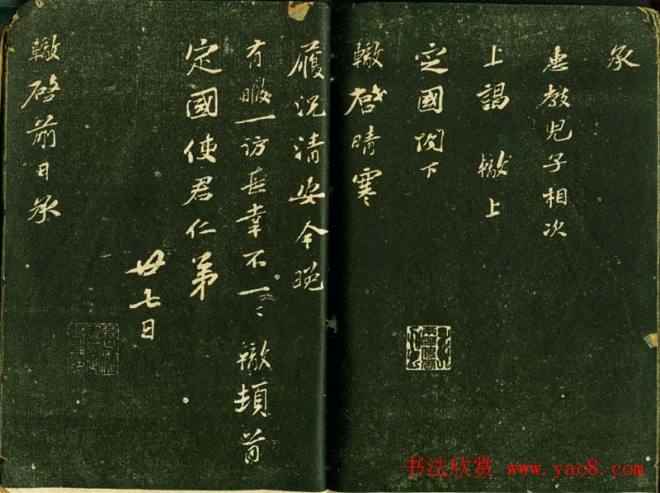 承
惠教兒子相次
上謁 轍上
定國閤下
轍啓晴寒
履況清安今晚
有暇一訪甚幸不一〻 轍頓首
定國使君仁弟
廿七日
轍啓前日承
书法欣赏 www.yac8.com